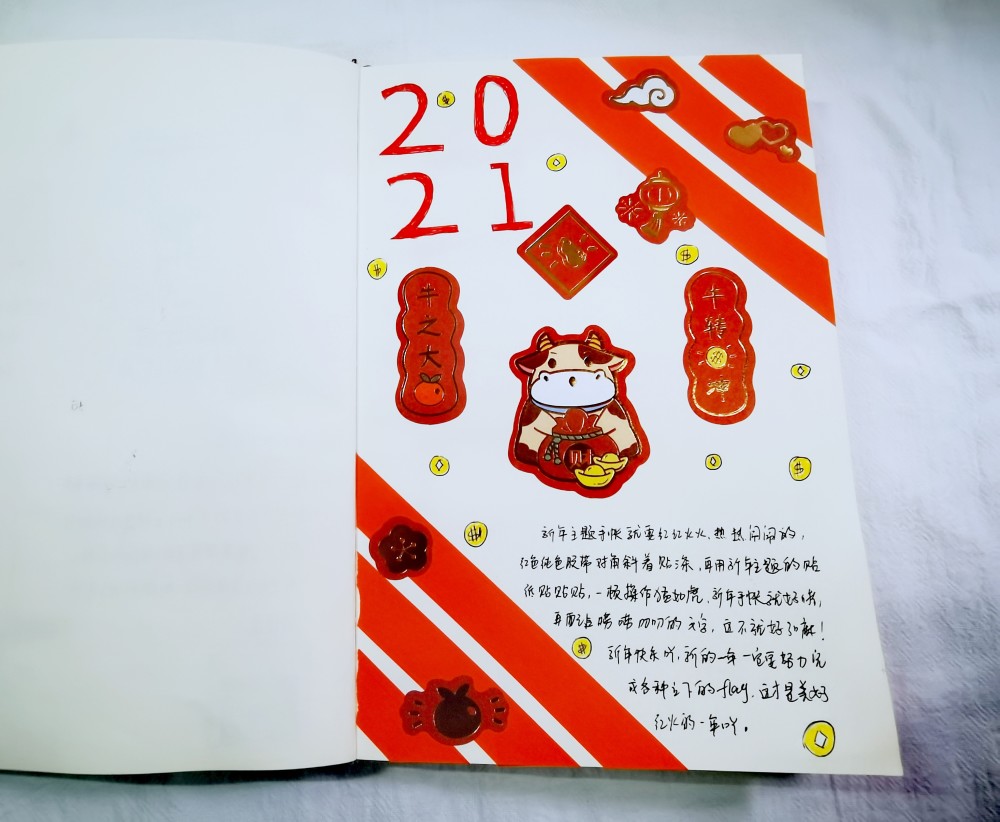 20
21
牛之大
牛转
财
新年主题手帐就要红红火火、热热闹闹的,
红色纯色胶带对角斜着贴满,再用新年主题的贴
纸贴贴贴,一顿操作猛如虎,新年手帐就好啦,
再配上唠唠叨叨的文字,这不就好了嘛!
新年快乐吖,新的一年一定要努力完
成各种立下的flag,这才是美好
红火的一年吖。